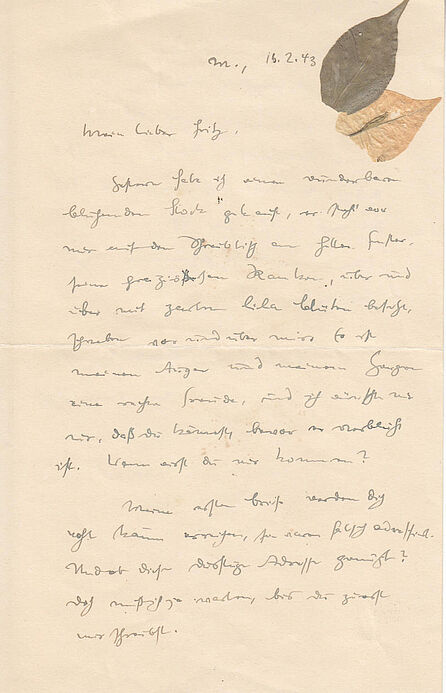 M., 16.2.43
Mein lieber Fritz,
Gestern habe ich einen wunderbaren
blühenden Stock gekauft, er steht vor
mir auf dem Schreibtisch am hellen Fenster,
seine graziösen Ranken, über und
über mit zarten lila Blüten besetzt,
schweben vor und über mir. Es ist
meinen Augen und meinem Herzen
eine rechte Freude, und ich wünschte
mir, daß du kämest, bevor er verblüht
ist. Wann wirst du nur kommen?
Meine ersten Briefe werden dich
wohl kaum erreichen, sie waren falsch adressiert.
Und ob diese dürftige Adresse genügt?
Doch muß ich ja warten, bis du zuerst
mir schreibst.